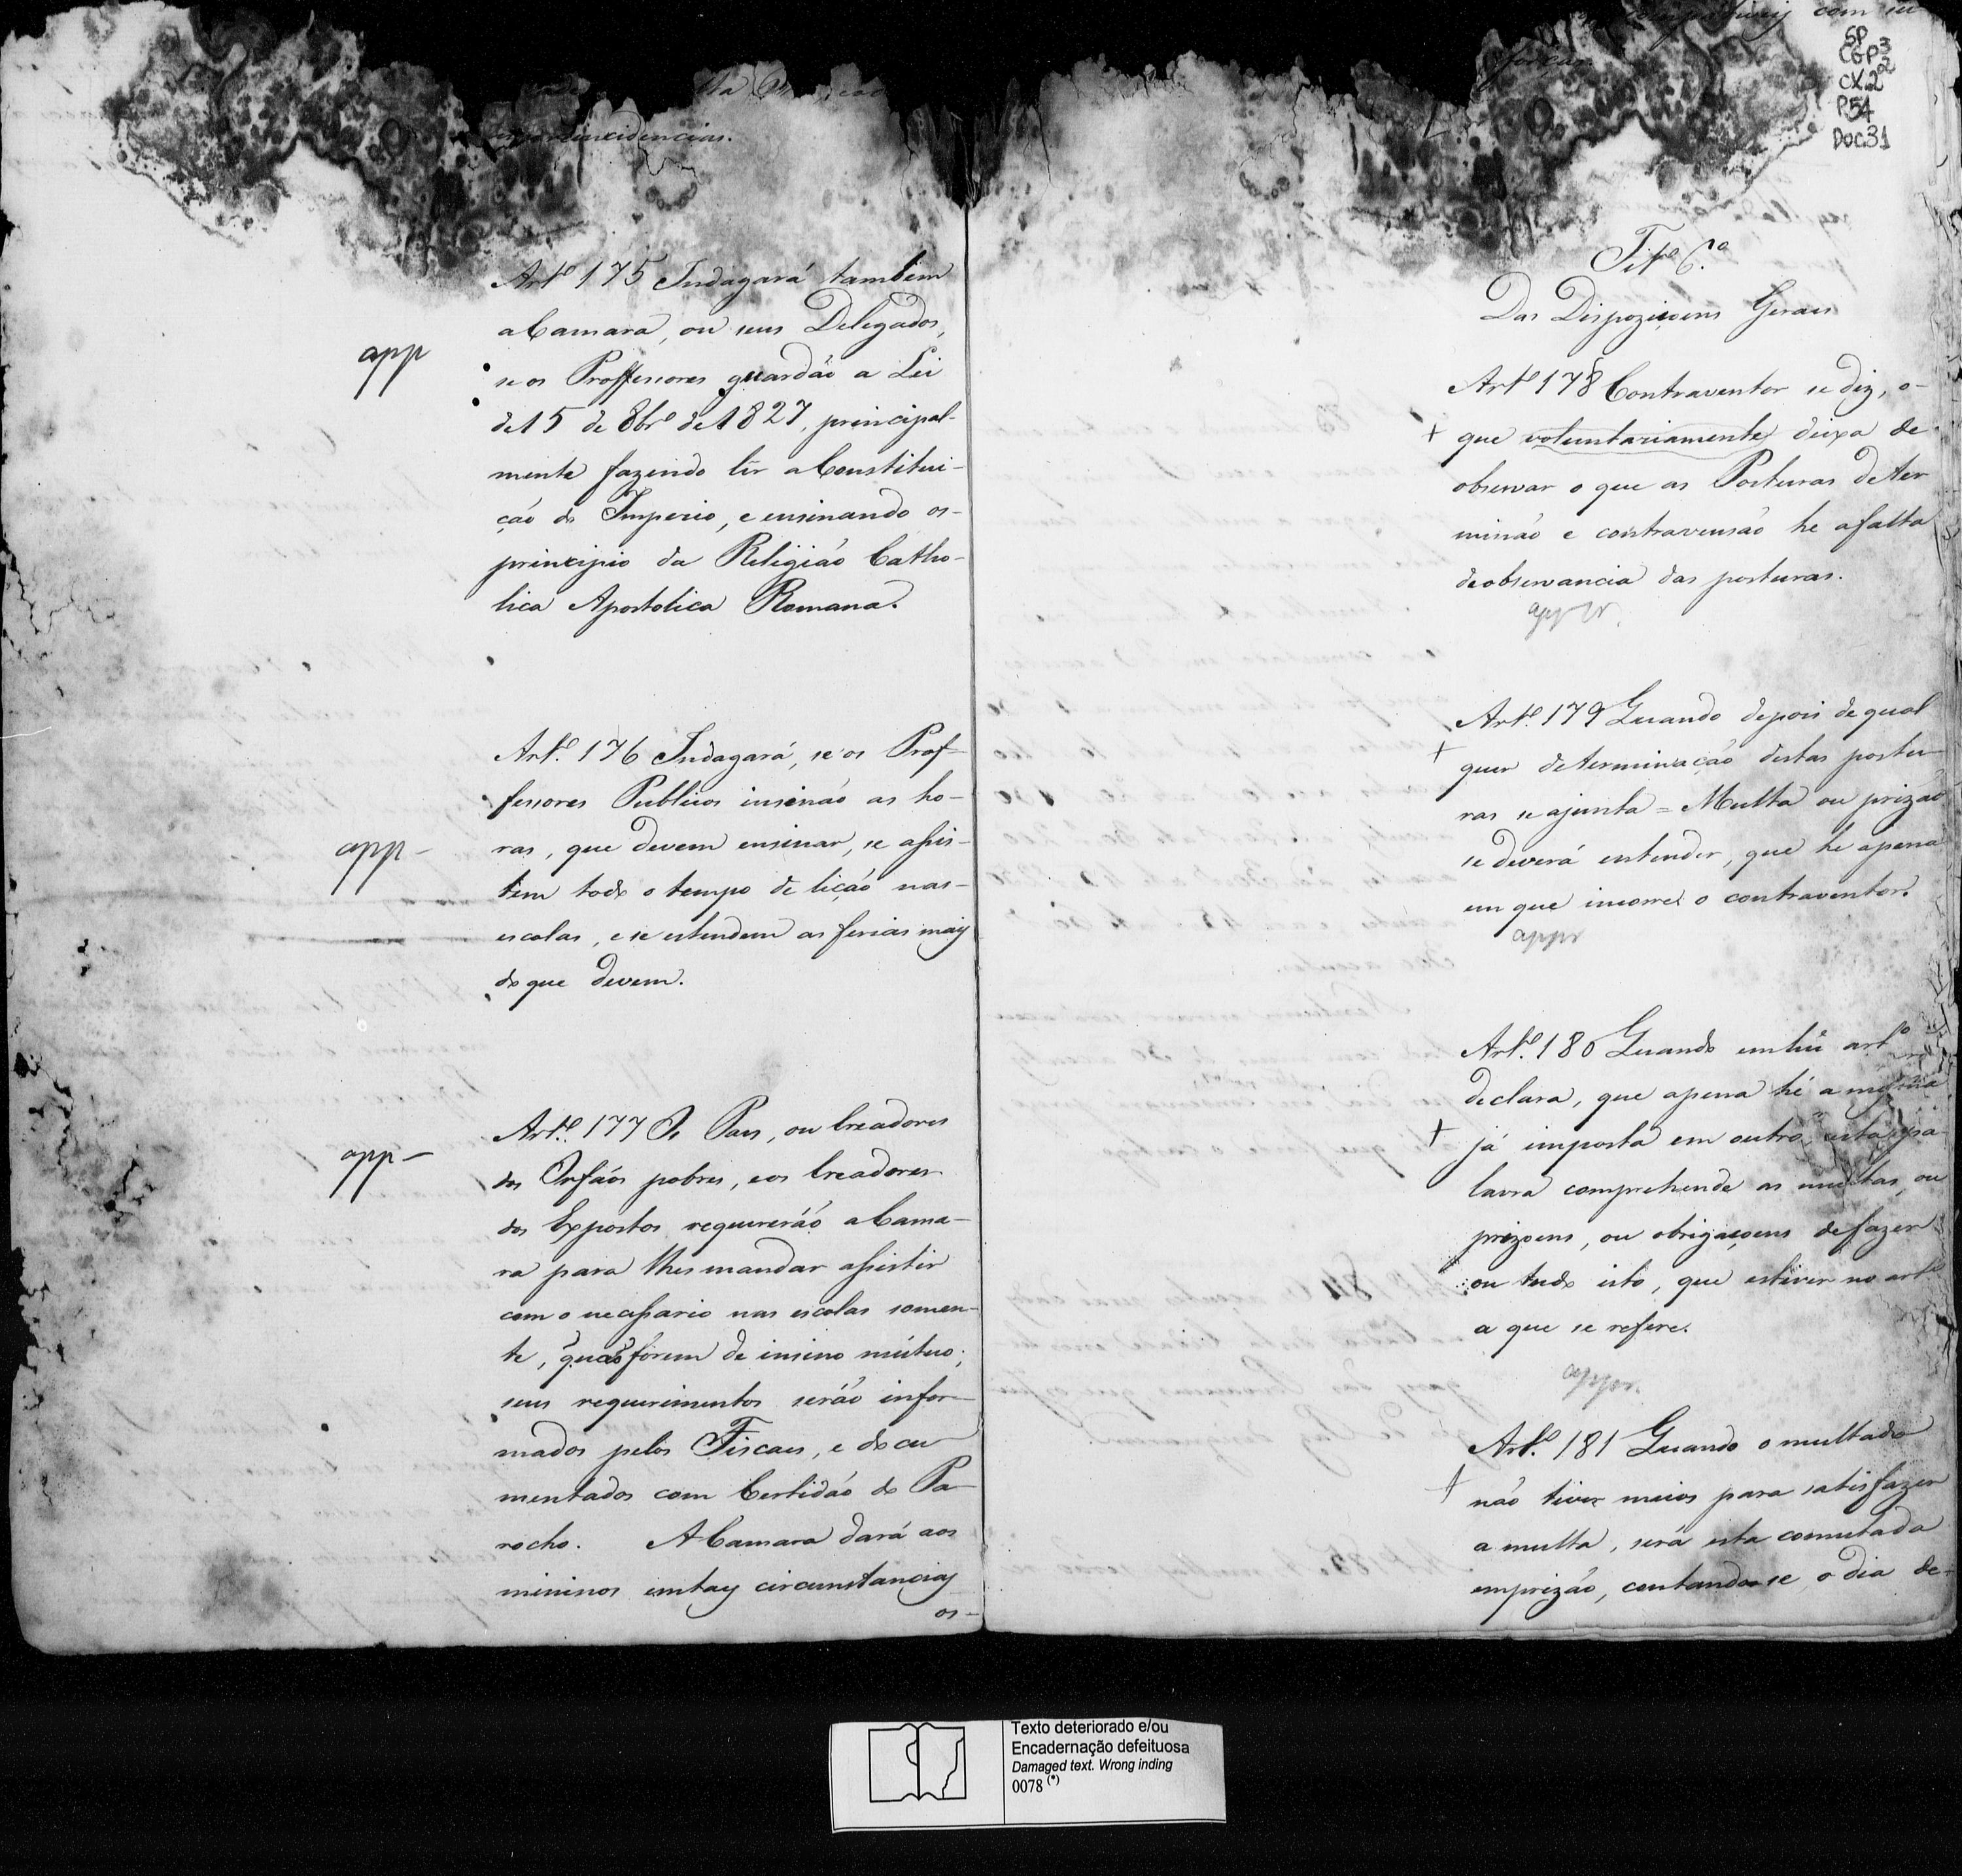 reincidencias.
Artº 175 Indagará tambem
a Camara, ou seus Delegados,
app
se os Proffessores guardão a Lei
de 15 de 8brº de 1827, principal-
mente fazendo lêr a Constitui-
ção do Imperio, e ensinando os-
principio da Religião Catho-
lica Apostolica Romana.
Artº. 176 Indagará, se os Prof-
fessores Publicos insinão as ho-
app-
ras, que devem ensinar, se assis-
tem todo o tempo de lição nas-
escolas, e se estendem as ferias mais
do que devem.
Artº. 177 Os Pais, ou Creadores
app-
dos Orfãos pobres, e os Creadores
dos Expostos requererão a Cama-
ra para lhes mandar assistir
com o necessario nas escolas somen-
te, quaes forem de insino mútuo;
seus requerimentos serão infor-
mados pelos Fiscaes, e docu
mentados com Certidão do Pa-
rocho. A Camara dará aos
mininos em tays circunstancias
os-
com
SP
CGP3
CX.2
P54
Doc31
Titº 6.º
Das Dispoziçoens Geraes
Artº 178 Contraventor se diz, o-
+ que voluntariamente deixa de
observar o que as Posturas deter
minão e contravensão he a falta
de observancia das posturas.
appr.
Artº. 179 Quando depois de qual
+ quer determinação destas postu-
ras se ajunta = Multa ou prizão
se deverá entender, que he a pena
em que incorre o contraventor.
appr
Artº. 180 Quando em hũ artº
declara, que a pena hé a mesma
+ já imposta em outro, esta pa
lavra comprehende as multas, ou
prizoens, ou obrigaçoens de fazer
ou tudo isto, que estiver no artº
a que se refere.
appr.
Artº. 181 Quando o multado
+ não tiver meios para satisfazer
a multa, será esta comutada
em prizão, contando-se o dia de-
Texto deteriorado e/ou
Encadernação defeituosa
Damaged text. Wrong inding
0078 (*)